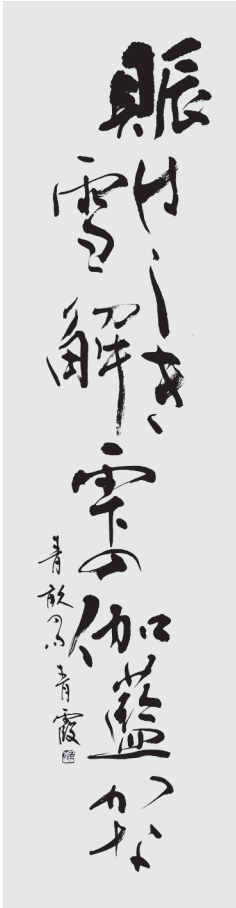 賑はしき
雪解雫の伽藍かな
青畝の句 青霞